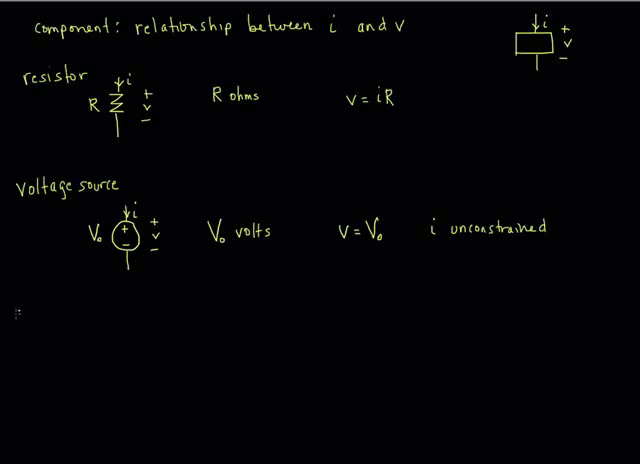 component: relationship between i and v
i
+
v
−
resistor
i
R
+
v
−
R ohms
v = iR
Voltage source
i
V₀
+
−
+
v
−
V₀ volts
v = V₀
i unconstrained